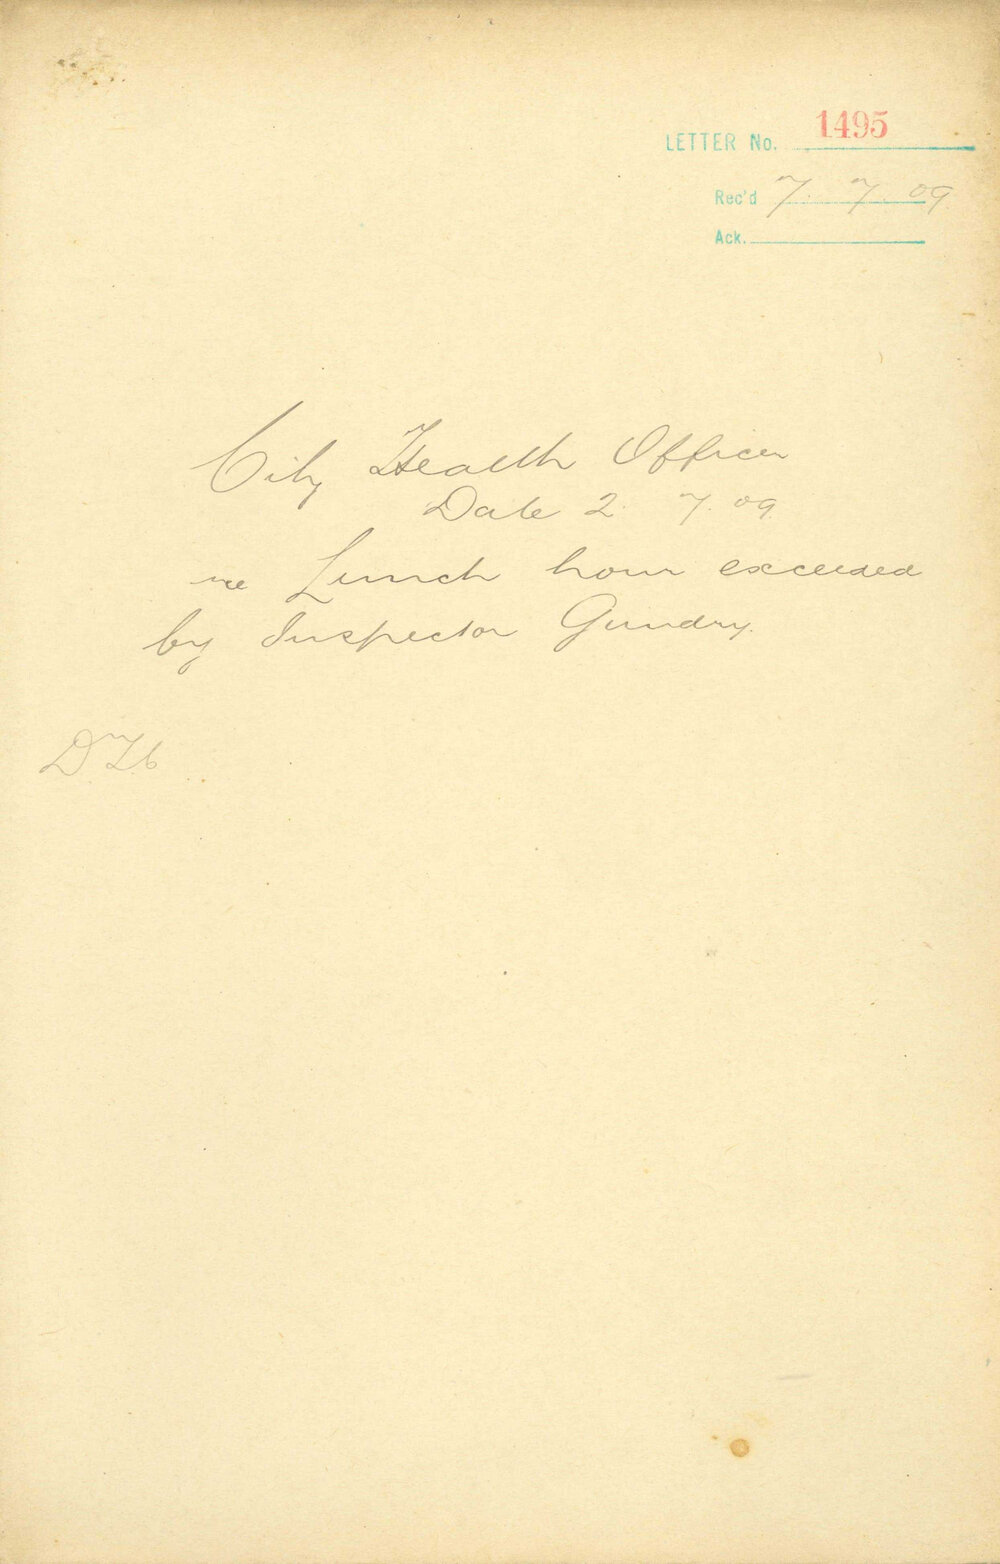 LETTER No. 1495
Rec'd 7. 7. 09
Ack.
City Health Officer
Date 2. 7. 09.
re Lunch hour exceeded
by Inspector Gundry.